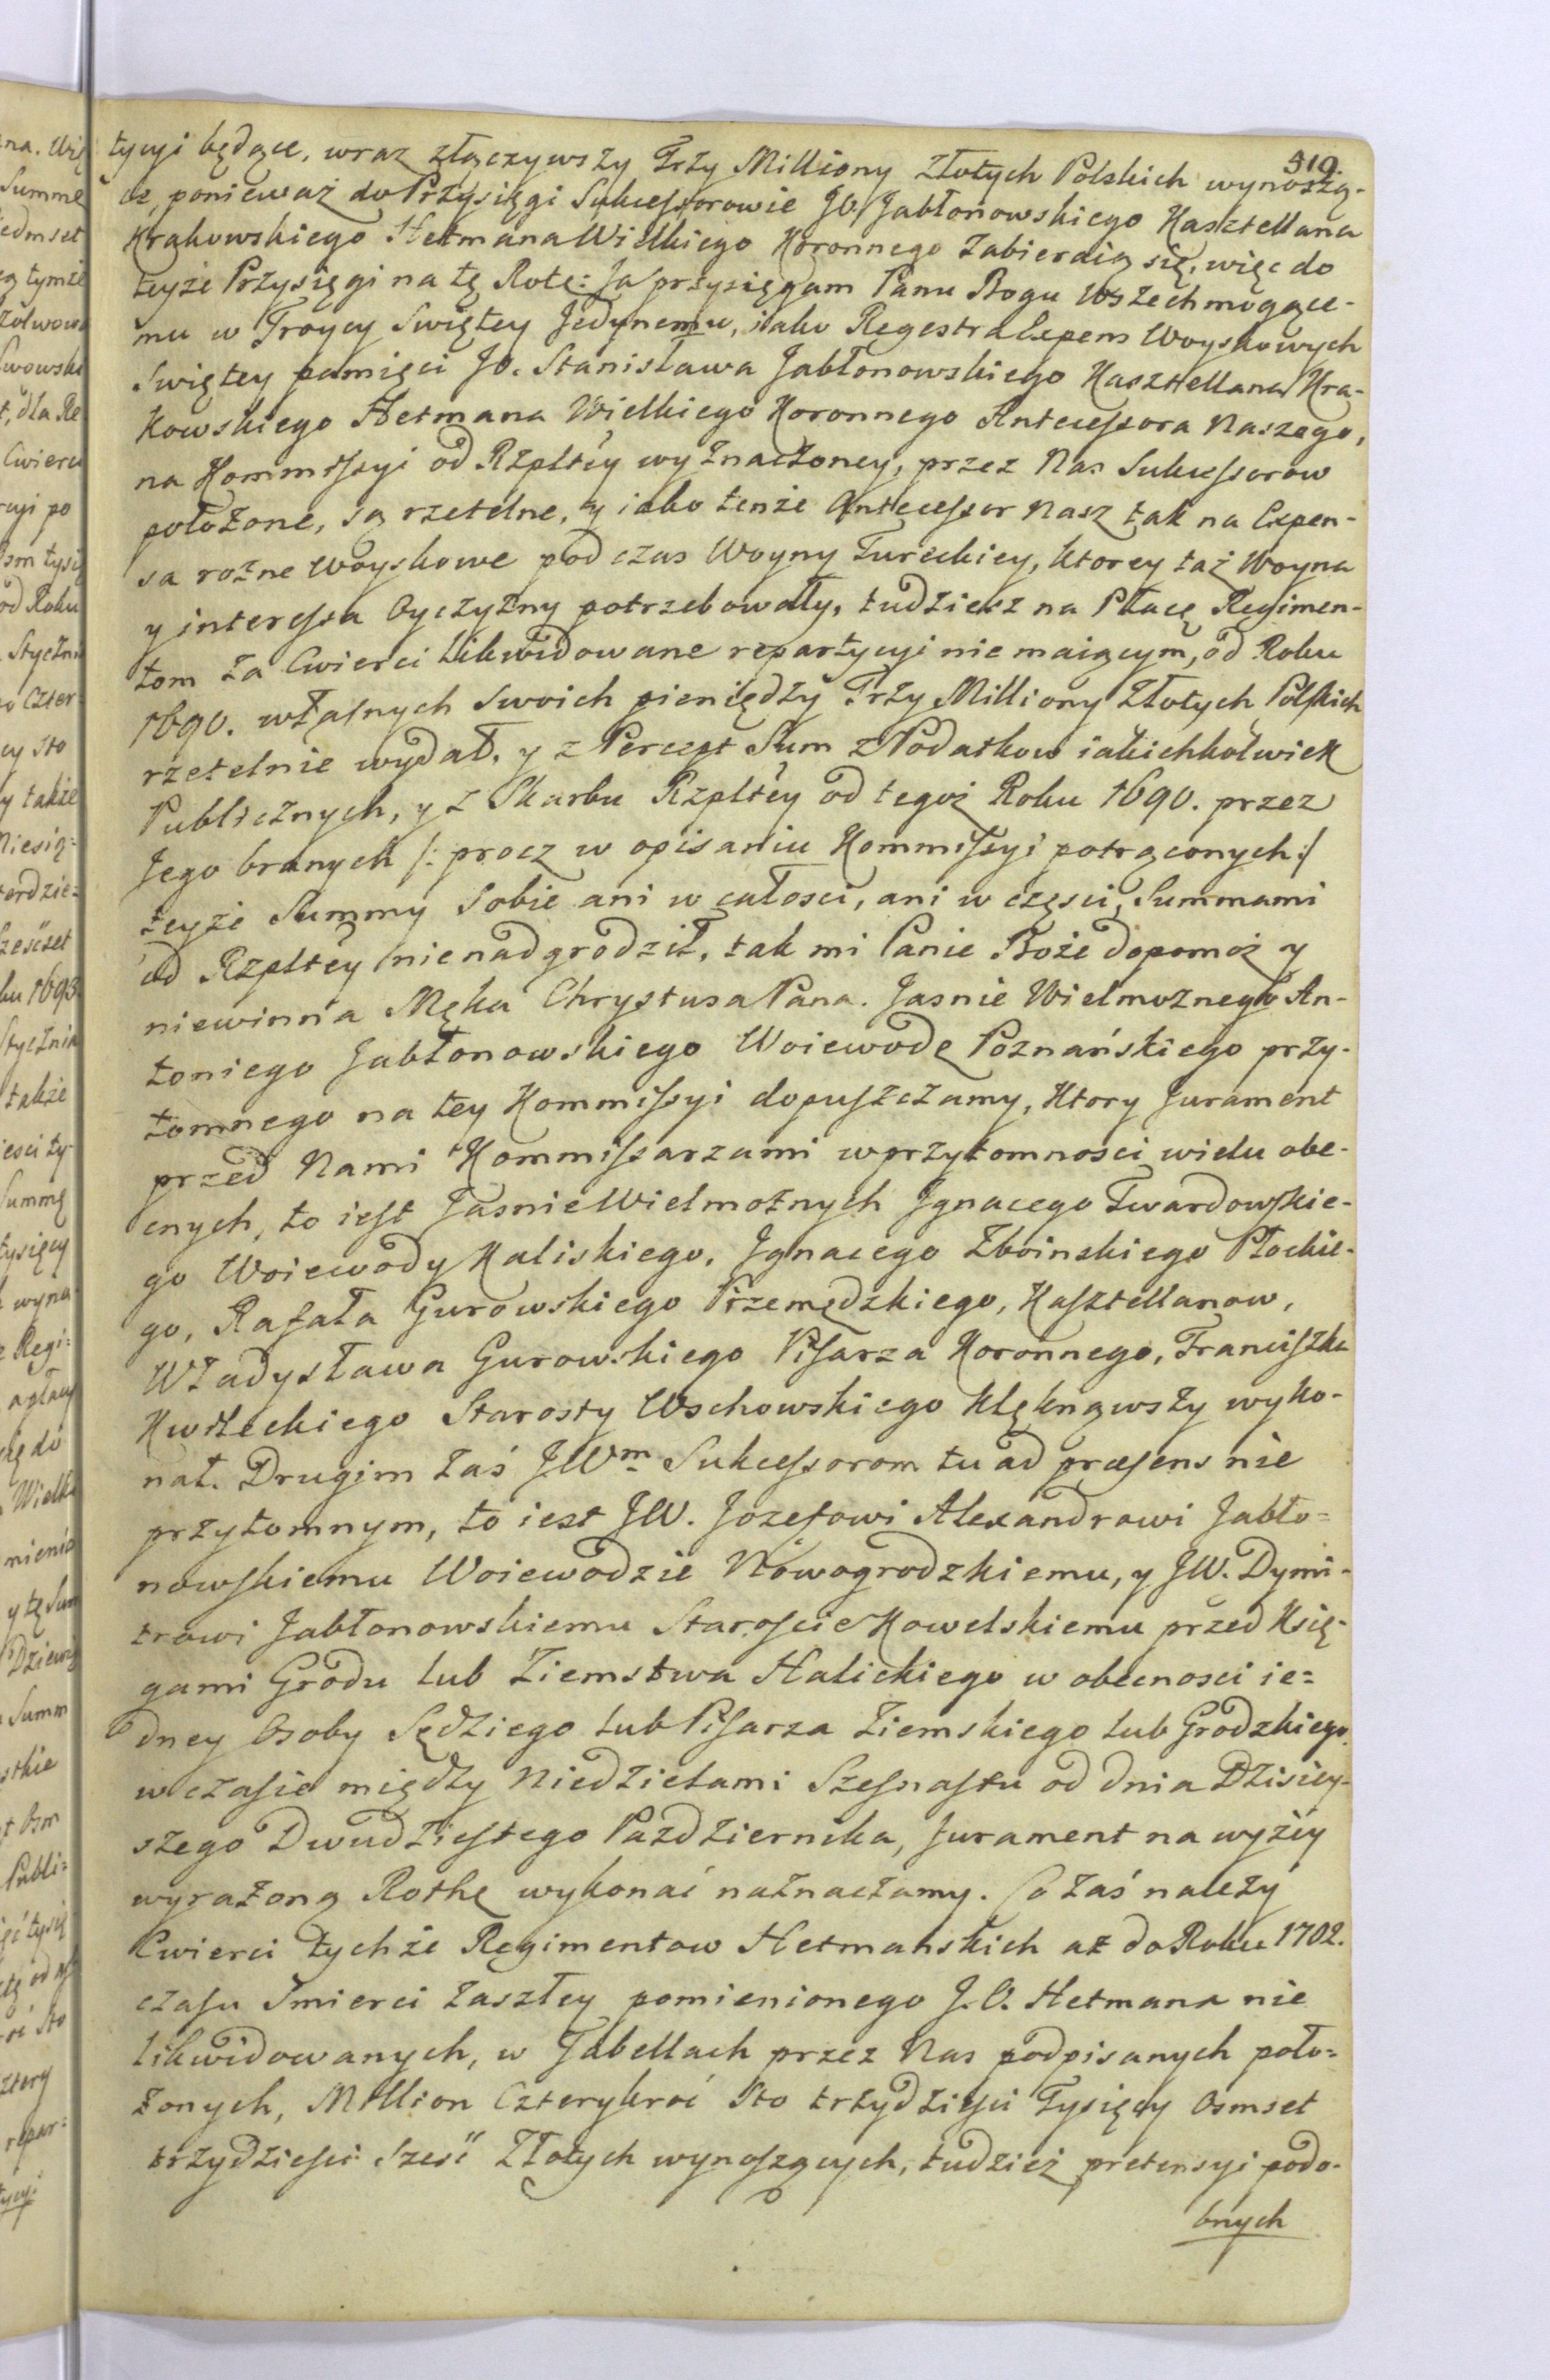 519.
tycyi będące, wraz złączywszy Trzy Milliony Złotych Polskich wynoszą-
ce, ponieważ do Przysięgi Sukcessorowie JO. Jabłonowskiego Kasztellana
Krakowskiego Hetmana Wielkiego Koronnego zabieraią się, więc do
teyże Przysięgi na tę Rotę: Ja przysięgam Panu Bogu Wszechmogące-
mu w Troycy Swiętey Jedynemu, iako Regestra Expens Woyskowych
Swiętey pamięci JO. Stanisława Jabłonowskiego Kasztellana Kra-
kowskiego Hetmana Wielkiego Koronnego Antecessora Naszego,
na Kommissyi od Rzpltey wyznaczoney, przez Nas Sukcessorow
położone, są rzetelne, y iako tenże Antecessor Nasz tak na Expen-
sa rożne Woyskowe podczas Woyny Tureckiey, ktorey taż Woyna
y interessa Oyczyzny potrzebowały, tudziesz na Płacę Regimen-
tom za Cwierci likwidowane repartycyi nie maiącym, od Roku
1690. własnych Swoich pieniędzy Trzy Milliony Złotych Polskich
rzetelnie wydał, y z Percept Sum z Podatkow iakichkolwiek
Publicznych, y z Skarbu Rzpltey od tegoż Roku 1690. przez
Jego branych /: procz w opisaniu Kommissyi potrąconych :/
teyże Summy Sobie ani w całosci, ani w częsci, Summami
od Rzpltey nie nadgrodził, tak mi Panie Boże dopomoż y
niewinna Męka Chrystusa Pana. Jasnie Wielmoznego An-
toniego Jabłonowskiego Woiewodę Poznańskiego przy-
tomnego na tey Kommissyi dopuszczamy, Ktory Jurament
przed Nami Kommissarzami w przytomnosci wielu obe-
cnych, to iest Jasnie Wielmożnych Jgnacego Twardowskie-
go Woiewody Kaliskiego, Jgnacego Zboinskiego Płockie-
go, Rafała Gurowskiego Przemędzkiego, Kasztellanow,
Władysława Gurowskiego Pisarza Koronnego, Franciszka
Kwileckiego Starosty Wschowskiego klęknąwszy wyko-
nał. Drugim zaś JWm. Sukcessorom tu ad præsens nie
przytomnym, to iest JW. Jozefowi Alexandrowi Jabło=
nowskiemu Woiewodzie Nowogrodzkiemu, y JW. Dymi-
trowi Jabłonowskiemu Staroscie Kowelskiemu przed Xię-
gami Grodu lub Ziemstwa Halickiego w obecnosci ie=
dney Osoby Sędziego lub Pisarza Ziemskiego lub Grodzkiego
w czasie między Niedzielami Szesnastu od dnia Dzisiey-
szego Dwudziestego Pazdziernika, Jurament na wyżey
wyrażoną Rothę wykonać naznaczamy. Co zaś należy
Cwierci tychże Regimentow Hetmańskich aż do Roku 1702.
czasu Smierci zaszłey pomienionego J.O. Hetmana nie
likwidowanych, w Tabellach przez Nas podpisanych poło=
żonych, Million Czterykroć Sto trzydziesci Tysięcy Osmset
trzydziesci Szesć Złotych wynoszących, tudzież pretensyi podo-
bnych